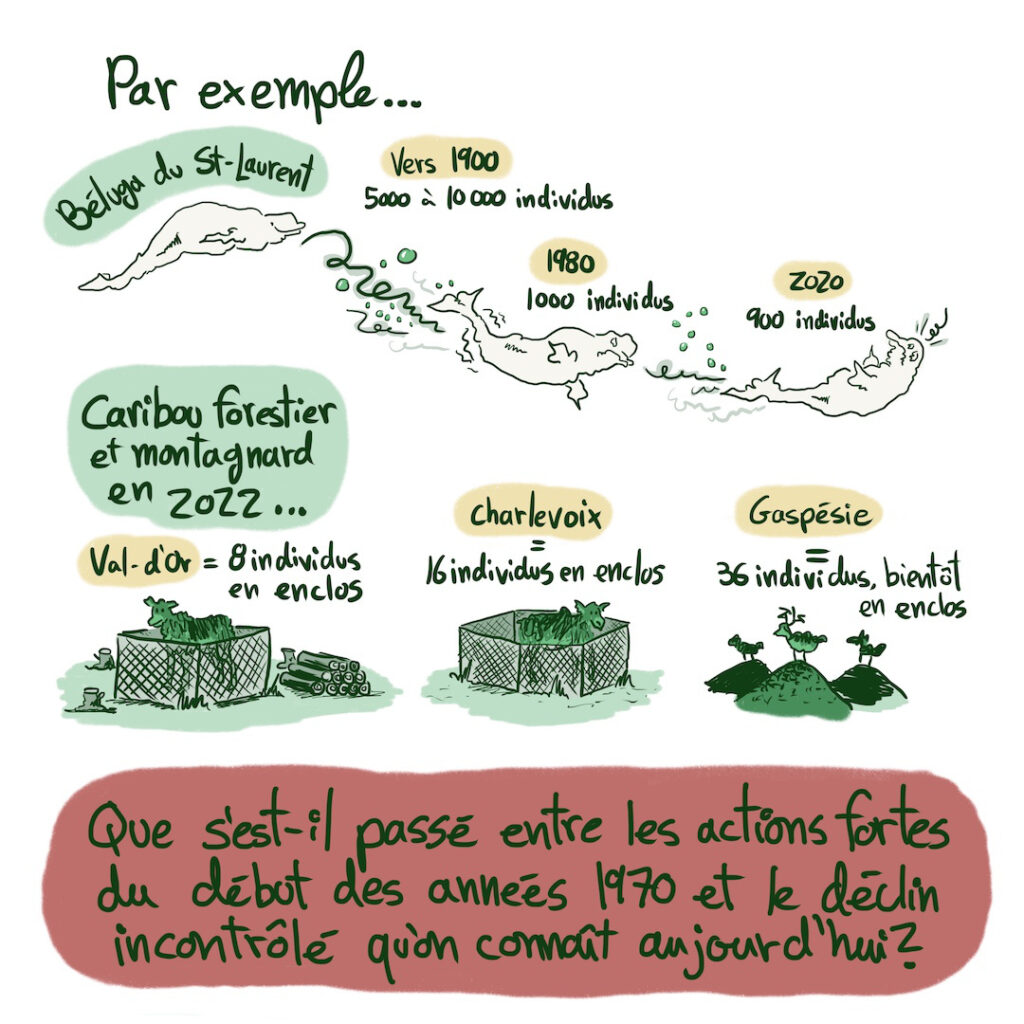 Par exemple...
Béluga du St-Laurent
Vers 1900
5000 à 10 000 individus
1980
1000 individus
2020
900 individus
Caribou forestier
et montagnard
en 2022...
Val-d'Or = 8 individus
en enclos
Charlevoix
=
16 individus en enclos
Gaspésie
=
36 individus, bientôt
en enclos
Que s'est-il passé entre les actions fortes
du début des anneés 1970 et le déclin
incontrôlé qu'on connaît aujourd'hui?